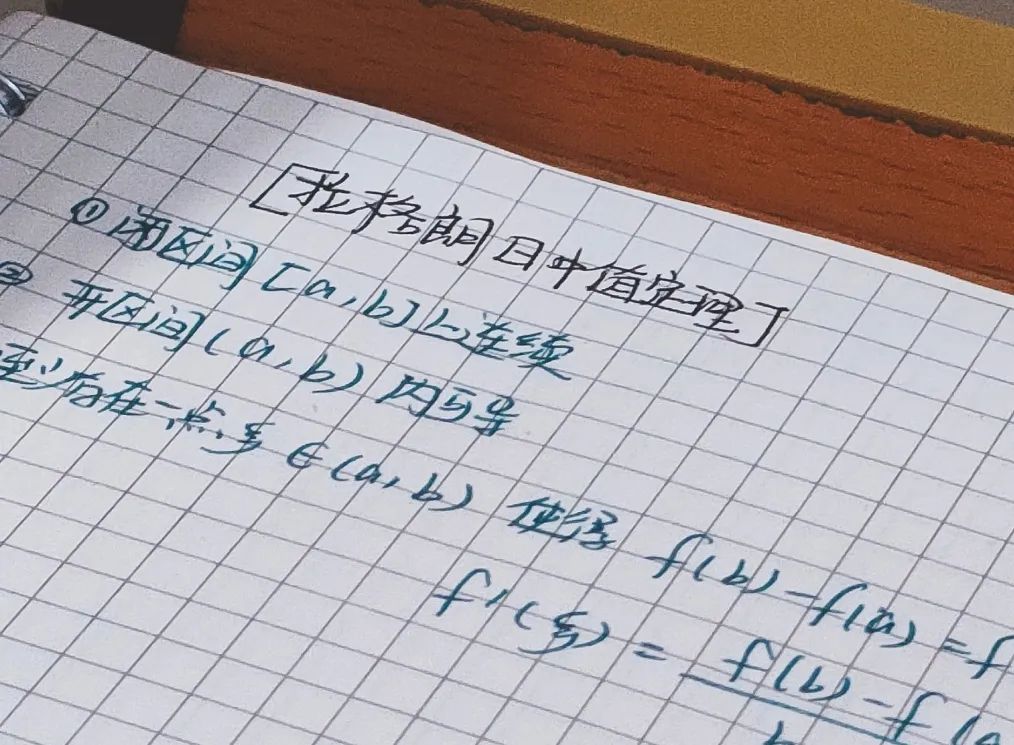 [拉格朗日中值定理]
① 闭区间[a,b]上连续
② 开区间(a,b)内可导
至少存在一点ξ∈(a,b) 使得 f(b)-f(a)=f
f'(ξ)=f(b)-f(a
b